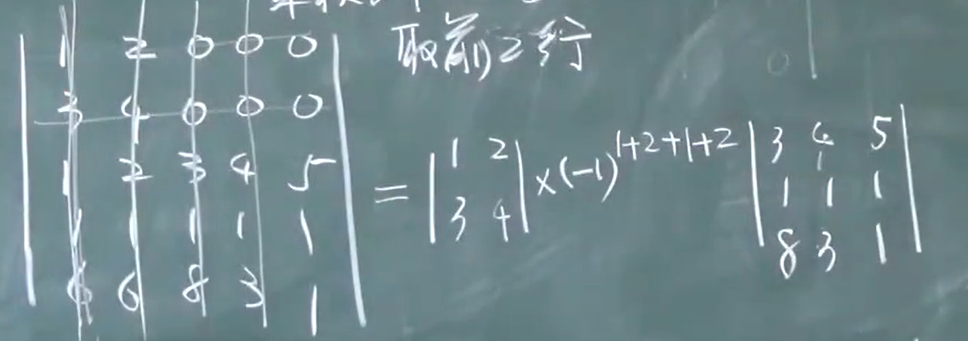 取前2行
| 1 2 0 0 0 |
| 3 4 0 0 0 |
| 1 2 3 4 5 |
| 1 1 1 1 1 |
| 6 6 8 3 1 |
= | 1 2 |
| 3 4 |
×(-1)^{1+2+1+2}
| 3 4 5 |
| 1 1 1 |
| 8 3 1 |